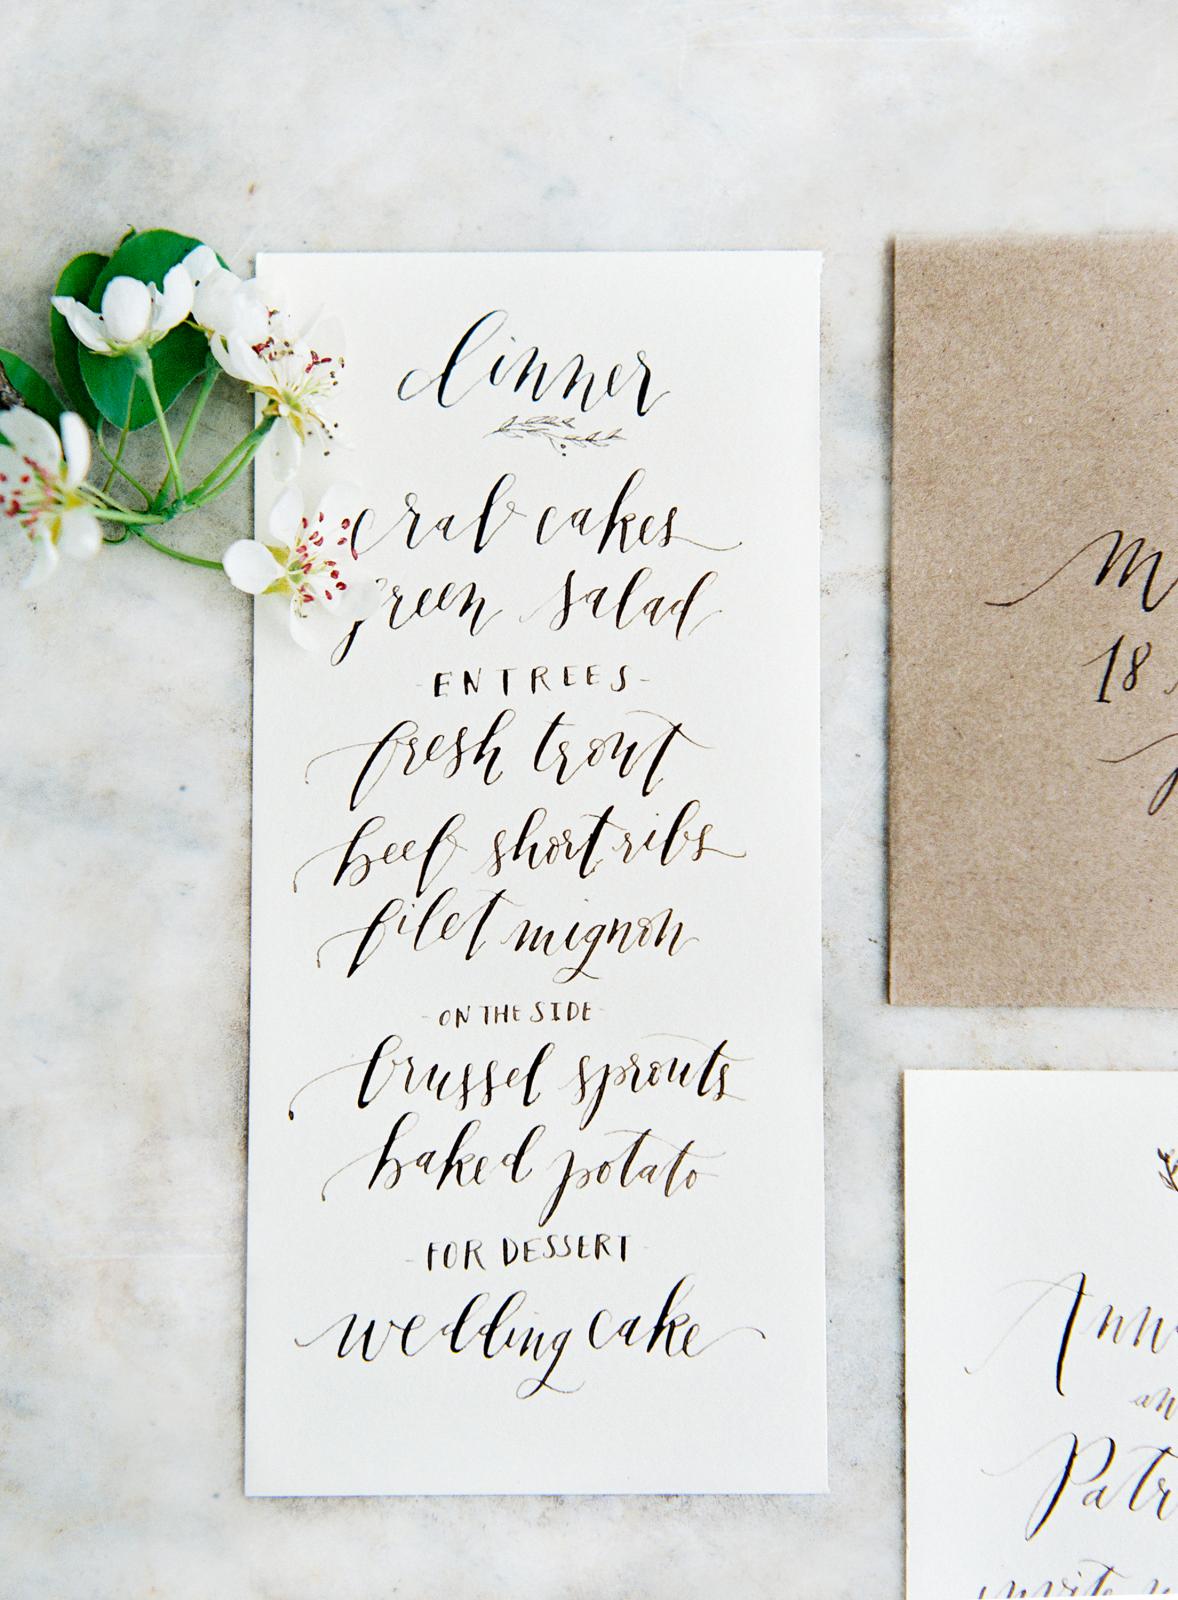 dinner
crab cakes
green salad
-ENTREES-
fresh trout
beef short ribs
filet mignon
-ON THE SIDE-
brussel sprouts
baked potato
-FOR DESSERT-
wedding cake
M
18
Ann
an
Patr
invite